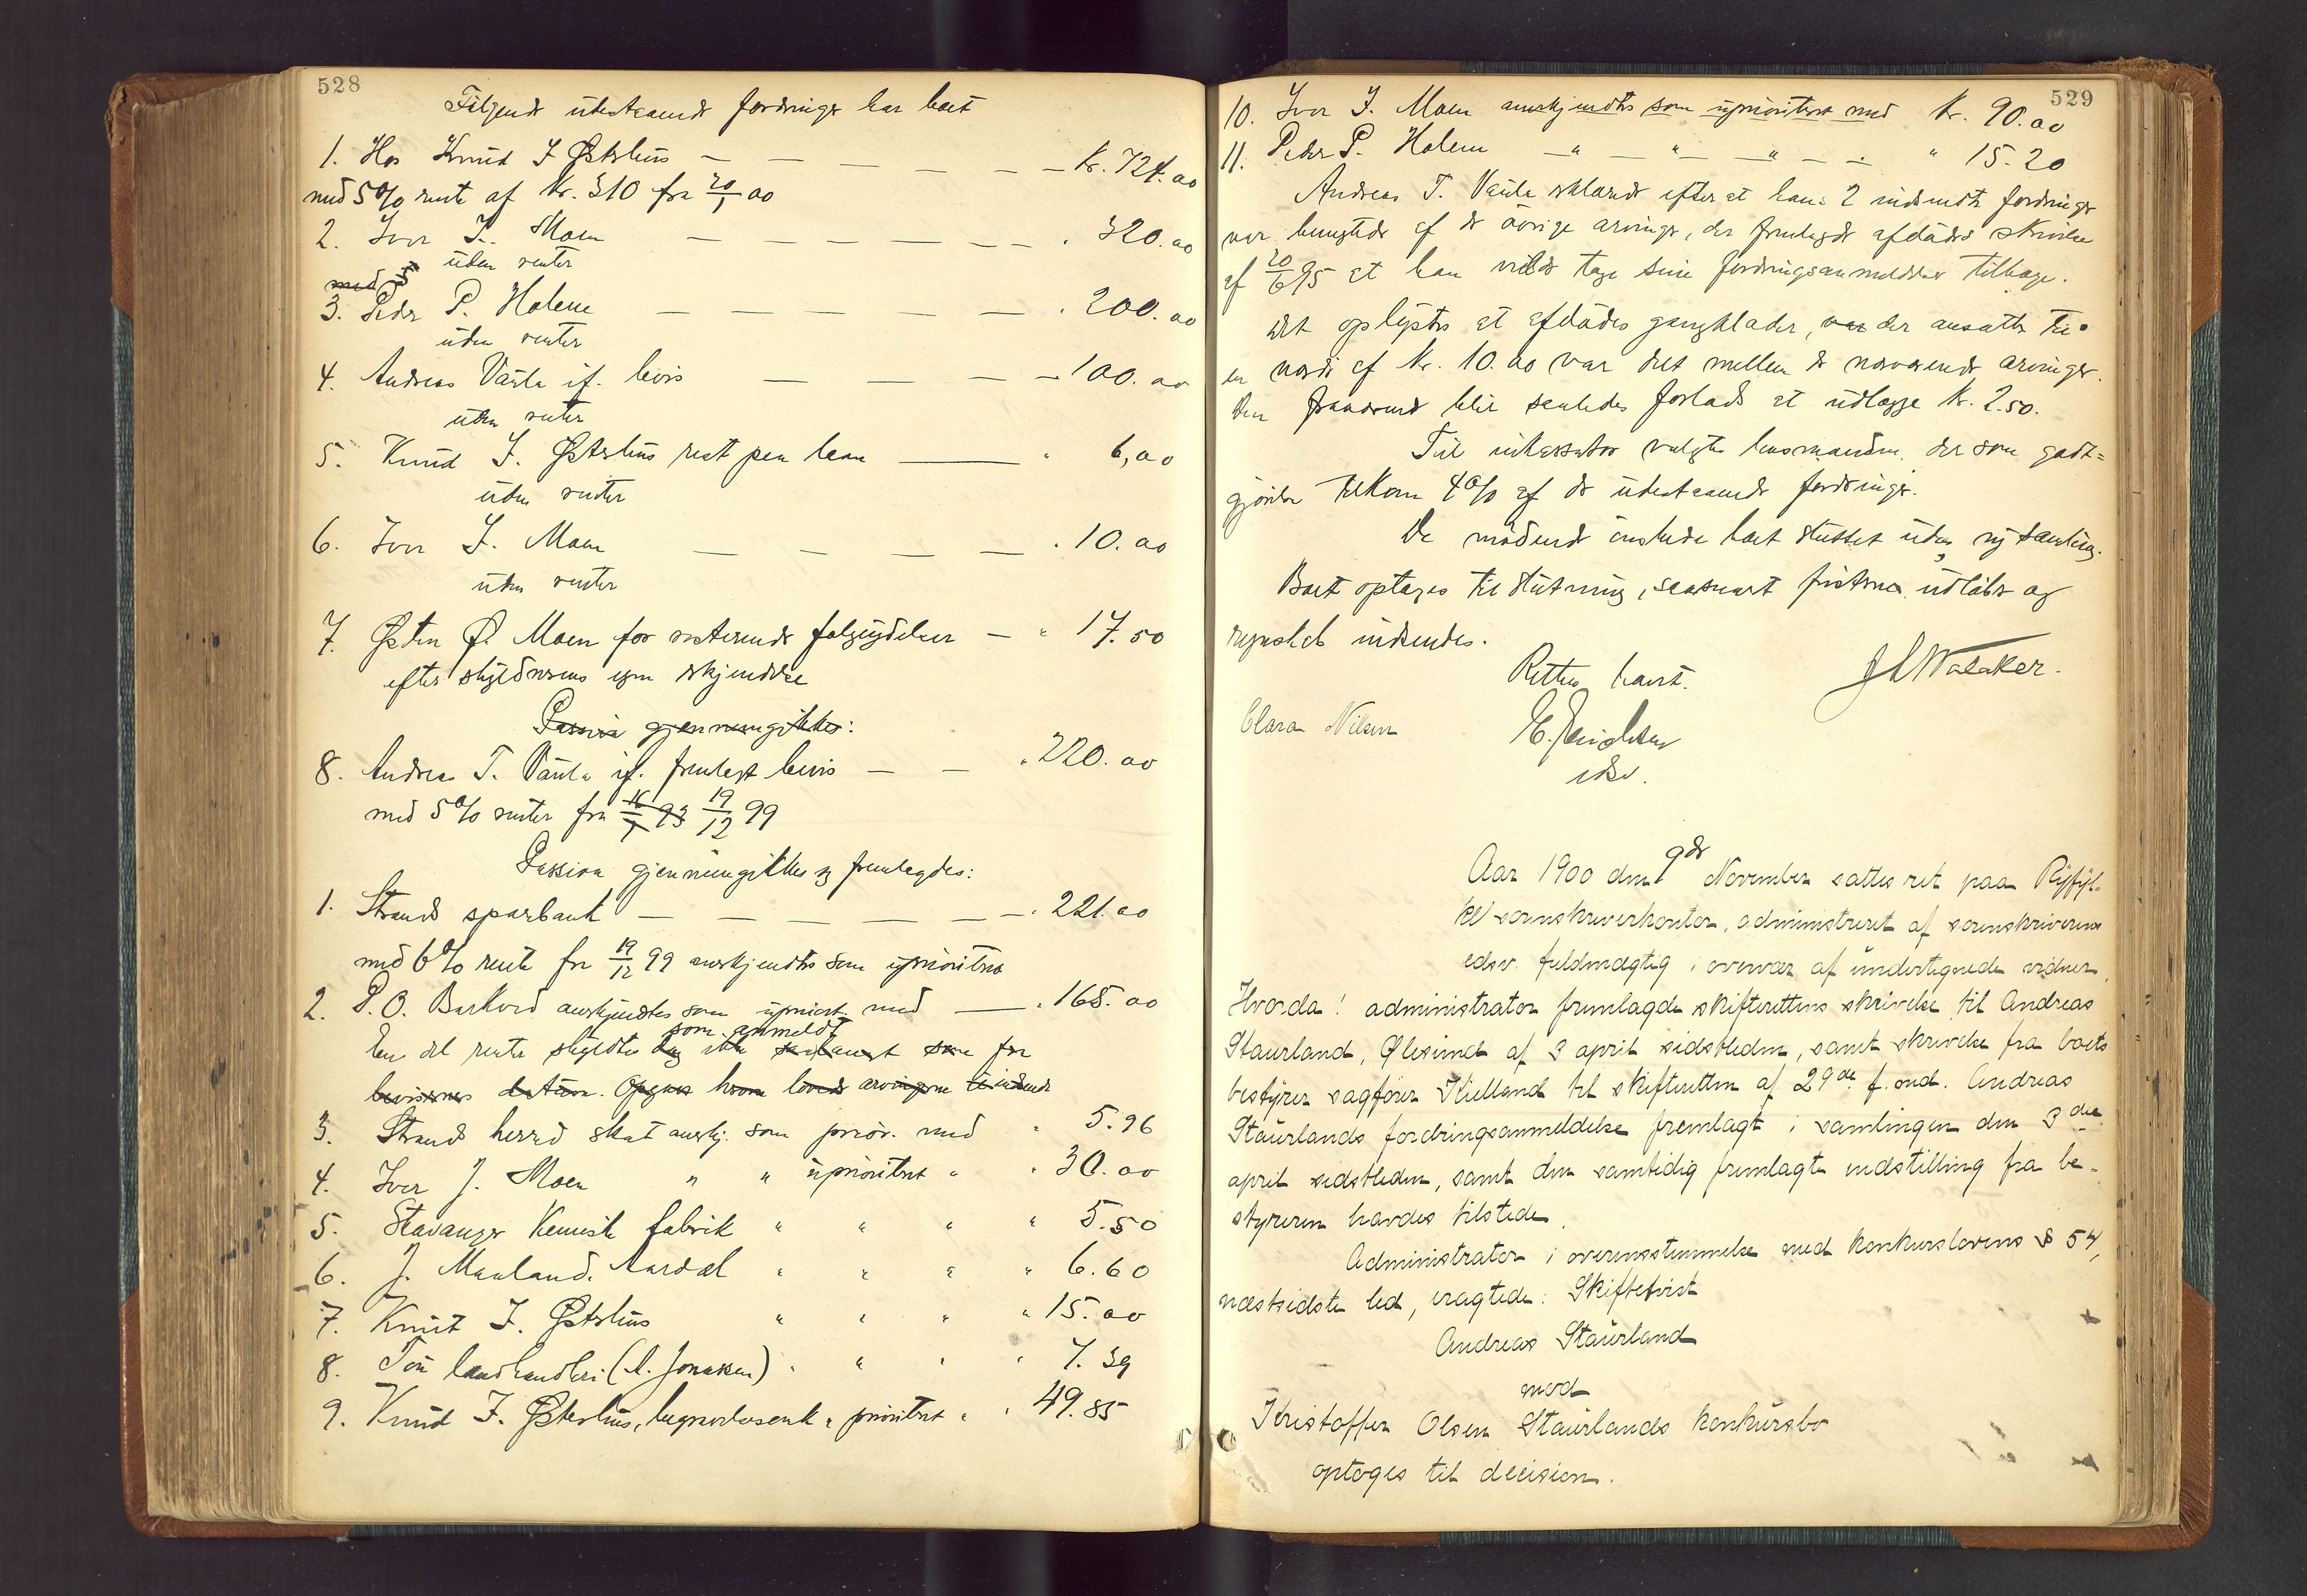 528
Følgende udestaaende fordringer har boet
1. Hos Knud I Østerhus — — — — — Kr. 724.00
med 5% rente af Kr. 310 fra 20/1 00
2. Iver I. Moen — — — — — — . 320.00
uden renter
med 5
3. Peder P. Holene — — — — — . 200.00
uden renter
4. Andreas Vaula if. bevis — — — — 100.00
uden renter
5. Knud I. Østerhus rest paa laan — " 6,00
uden renter
6. Iver I. Moen — — — — . 10.00
uden renter
7. Østen Ø. Moen for resterende følgeydelser — " 17.50
efter skyldnerens egen erkjendelse
Passiva gjennemgikkes:
8. Andreas T. Vaula if. fremlagt bevis — — " 220.00
med 5% renter fra 16/7 93 19/12 99
Passiva gjennemgikkes og fremlagdes:
1. Strands sparbank — — — — — . 221.00
med 6% rente fra 19/12 99 anerkjendtes som uprioriteret
2. P. O. Barkved anerkjendtes som upriort. med — . 165.00
som anmeldt
En del rente skyldtes dog ikke saalangt som fra
bevisernes datum.
3. Strands herred skat anerkj. som prior. med " 5.96
4. Iver J. Moen " " uprioriteret " " 30.00
5. Stavanger Kemiske fabrik " " " " 5.50
6. J. Mauland. Aardal " " " " 6.60
7. Knut I. Østerhus " " " " 15.00
8. Tau landhandleri (l. Jonassen) " " " " 7.39
9. Knud I. Østerhus, begravelsesomk " prioriteret " " 49.85
529
10. Iver I. Moen anerkjendtes som uprioriteret med Kr. 90.00
11. Peder P. Holene — " — " — " — . " 15.20
Andreas T. Vaula erklærede efter at hans 2 indsendte fordringer
var benegtede af de øvrige arvinger, der fremlagde afdødes skrivelse
af 20/6 95 at han vilde tage sine fordringsanmeldelser tilbage.
Det oplystes at afdødes gangklæder, var der ansattes til
en værdi af Kr. 10.00 var delt mellem de nærværende arvinger.
Den fraværende blir saaledes forlods at udlægge Kr. 2.50.
Til inkassator valgtes lensmanden der som godt=
gjørelse tilkom 4% af de udestaaende fordringer.
De mødende ønskede boet sluttet uden ny samling.
Boet optages til slutning, saasnart fristerne udløber og
regnskab indsendes.
Retten hævet. J L Walaker.
Clara Nilsen E. Erichsen
edsv.
Aar 1900 den 9de November sattes ret paa Ryfyl-
ke sorenskriverkontor, administreret af sorenskriverens
edsv. fuldmægtig i overvær af undertegnede vidner.
Hvorda! administrator fremlagde skifterettens skrivelse til Andreas
Staurland, Ølesund af 3 april sidstleden, samt skrivelse fra boets
bestyrer sagfører Kielland til skifteretten af 29de f. md. Andreas
Staurlands fordringsanmeldelse fremlagt i samlingen den 3die
april sidstleden, samt den samtidig fremlagte indstilling fra be-
styreren havdes tilstede.
Administrator i overensstemmelse med konkurslovens § 54,
næstsidste led, eragtede: Skiftetvist
Andreas Staurland
mod
Kristoffer Olsen Staurlands konkursbo
optages til decision.